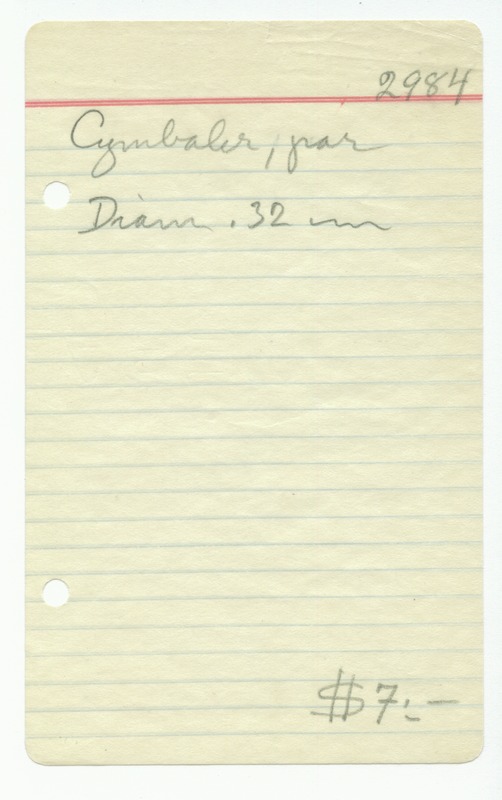 2984
Cymbaler, par
Diam. 32 cm
$7:-